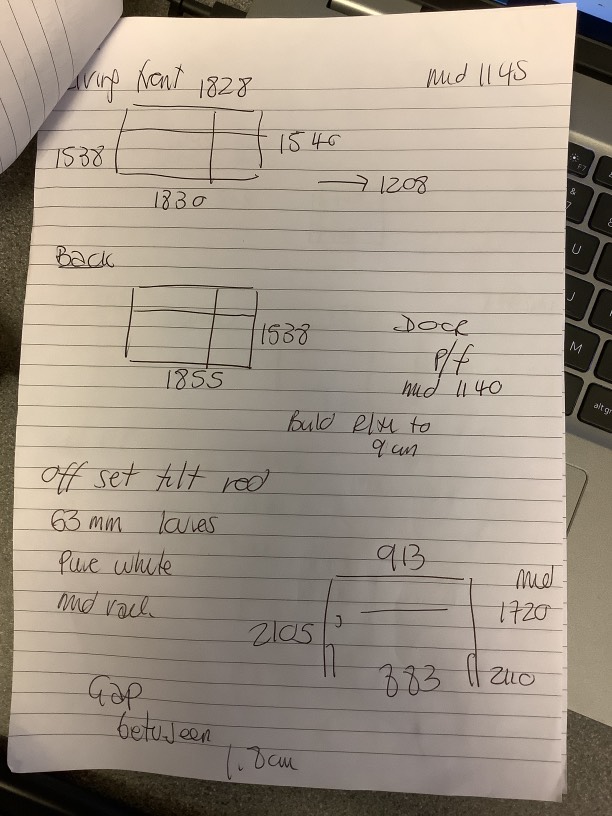 Living front 1828
mid 1145
1538
1540
1830
→ 1208
Back
1538
1855
Door
P/f
mid 1140
Build to
9 cm
off set tilt rod
63 mm
Pure white
mid
913
mid
1720
2105
883
2110
Gap
between
1.8cm
U
J
M
alt gr